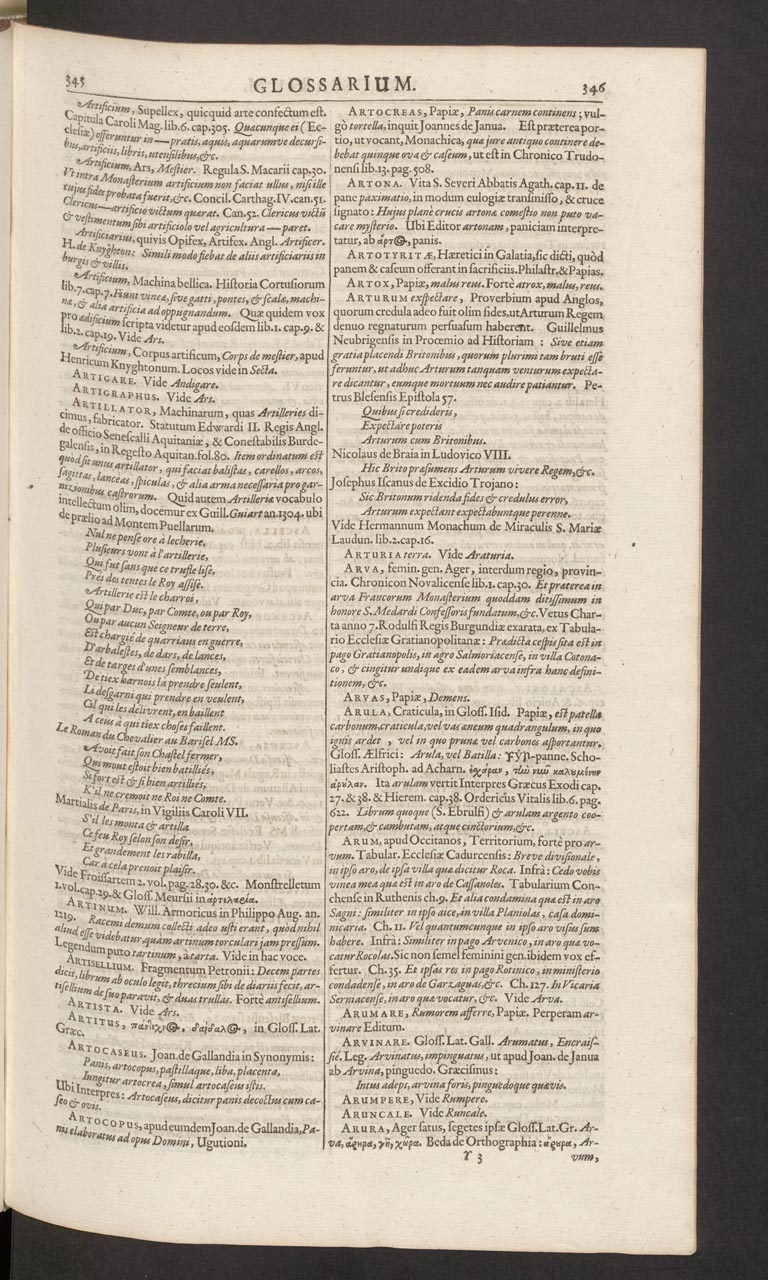 345
GLOSSARIUM.
346
Artificium, Supellex, quicquid arte confectum est.
Capitula Caroli Mag. lib. 6. cap. 305. Quæcunque ei (Ec-
clesiæ) offeruntur in — pratis, aquis, aquarumve decursi-
bus, artificiis, libris, utensilibus, &c.
Artificium, Ars, Mestier. Regula S. Macarii cap. 30.
Vt intra Monasterium artificium non faciat ullus, nisi ille
cujus fides probata fuerit, &c. Concil. Carthag. IV. can. 51.
Clericus — artificio victum quærat. Can. 52. Clericus victū
& vestimentum sibi artificiolo vel agricultura — paret.
Artificiarius, quivis Opifex, Artifex. Angl. Artificer.
H. de Knyghton: Simili modo fiebat de aliis artificiariis in
burgis & villis.
Artificium, Machina bellica. Historia Cortusiorum
lib. 7. cap. 7. Fiunt vineæ, sive gatti, pontes, & scalæ, machi-
næ, & alia artificia ad oppugnandum. Quæ quidem vox
pro ædificium scripta videtur apud eosdem lib. 1. cap. 9. &
lib. 2. cap. 19. Vide Ars.
Artificium, Corpus artificum, Corps de mestier, apud
Henricum Knyghtonum. Locos vide in Secta.
ARTIGARE. Vide Andigare.
ARTIGRAPHUS. Vide Ars.
ARTILLATOR, Machinarum, quas Artilleries di-
cimus, fabricator. Statutum Edwardi II. Regis Angl.
de officio Senescalli Aquitaniæ, & Conestabilis Burde-
galensis, in Regesto Aquitan. fol. 80. Item ordinatum est
quod sit unus artillator, qui faciat balistas, carellos, arcos,
sagittas, lanceas, spiculas, & alia arma necessaria pro gar-
nizionibus castrorum. Quid autem Artilleriæ vocabulo
intellectum olim, docemur ex Guill. Guiart an. 1304. ubi
de prælio ad Montem Puellarum.
Nul ne pense ore à lecherie,
Plusieurs vont à l'artillerie,
Qui fut sans que ce trufle lise,
Prei des tentes le Roy assise.
Artillerie est le charroi,
Qui par Duc, par Comte, ou par Roy,
Ou par aucun Seigneur de terre,
Est chargié de quarriaus en guerre,
D'arbalestes, de dars, de lances,
Et de targes d'unes semblances,
De tiex harnois là prendre seulent,
Li desgarni qui prendre en veulent,
Cil qui les délivrent, en baillent
A ceus à qui tiex choses faillent.
Le Roman du Chevalier au Barisel MS.
Avoit fait son Chastel fermer,
Qui mout estoit bien batilliés,
Si fort est & si bien artilliés,
K'il ne cremoit ne Roi ne Comte.
Martialis de Paris, in Vigiliis Caroli VII.
S'il les monta & artilla
Ce feu Roy selon son desir,
Et grandement les rabilla,
Car à cela prenoit plaisir.
Vide Froissartem 2. vol. pag. 28. 30. &c. Monstrelletum
1. vol. cap. 29. & Gloss. Meursii in ἀρτιλαρία.
ARTINUM. Will. Armoricus in Philippo Aug. an.
1219. Racemi demum collecti adeo usti erant, quod nihil
aliud esse videbatur, quam artinum torculari jam pressum.
Legendum puto tartinum, à tarta. Vide in hac voce.
ARTISELLIUM. Fragmentum Petronii: Decem partes
dicit, librum ab oculo legit, threcium sibi de diariis fecit, ar-
tisellium de suo paravit, & duas trullas. Fortè antisellium.
ARTISTA. Vide Ars.
ARTITUS, πανδεχνος, δαίδαλος, in Gloss. Lat.
Græc.
ARTOCASEUS. Joan. de Gallandia in Synonymis:
Panis, artocopus, pastillaque, liba, placenta,
Iungitur artocrea, simul artocaseus istis.
Ubi Interpres: Artocaseus, dicitur panis decoctus cum ca-
seo & ovis.
ARTOCOPUS, apud eumdem Joan. de Gallandia, Pa-
nis elaboratus ad opus Domini, Ugutioni.
ARTOCREAS, Papiæ, Panis carnem continens; vul-
gò tortella, inquit Joannes de Janua. Est præterea por-
tio, ut vocant, Monachica, quæ jure antiquo continere de-
bebat quinque ova & caseum, ut est in Chronico Trudo-
nensi lib. 13. pag. 508.
ARTONA. Vita S. Severi Abbatis Agath. cap. 11. de
pane paximatio, in modum eulogiæ transmisso, & cruce
signato: Hujus planè crucis artonæ comestio non puto va-
care mysterio. Ubi Editor artonam, paniciam interpre-
tatur, ab ἄρτος, panis.
ARTOTYRITÆ, Hæretici in Galatia, sic dicti, quòd
panem & caseum offerant in sacrificiis. Philastr. & Papias.
ARTOX, Papiæ, malus reus. Fortè atrox, malus, reus.
ARTURUM exspectare, Proverbium apud Anglos,
quorum credula adeo fuit olim fides, ut Arturum Regem
denuo regnaturum persuasum haberent. Guillelmus
Neubrigensis in Procemio ad Historiam: Sive etiam
gratia placendi Britonibus, quorum plurimi tam bruti esse
feruntur, ut adhuc Arturum tanquam venturum expecta-
re dicantur, eumque mortuum nec audire patiantur. Pe-
trus Blesensis Epistola 57.
Quibus si credideris,
Expectare poteris
Arturum cum Britonibus.
Nicolaus de Braia in Ludovico VIII.
Hic Brito præsumens Arturum vivere Regem, &c.
Josephus Iscanus de Excidio Trojano:
Sic Britonum ridenda fides & credulus error,
Arturum expectant expectabuntque perenne.
Vide Hermannum Monachum de Miraculis S. Mariæ
Laudun. lib. 2. cap. 16.
ARTURIA terra. Vide Araturia.
ARVA, femin. gen. Ager, interdum regio, provin-
cia. Chronicon Novalicense lib. 1. cap. 30. Et præterea in
arva Francorum Monasterium quoddam ditissimum in
honore S. Medardi Confessoris fundatum, &c. Vetus Char-
ta anno 7. Rodulfi Regis Burgundiæ exarata, ex Tabula-
rio Ecclesiæ Gratianopolitanæ: Prædicta cespis sita est in
pago Gratianopolis, in agro Salmoriacense, in villa Cotona-
co, & cingitur undique ex eadem arva infra hanc defini-
tionem, &c.
ARVAS, Papiæ, Demens.
ARULA, Craticula, in Gloss. Isid. Papiæ, est patella
carbonum, craticula, vel vas æneum quadrangulum, in quo
ignis ardet, vel in quo prunæ vel carbones asportantur.
Gloss. Ælfrici: Arula, vel Batilla: ꝼyꞃ-panne. Scho-
liastes Aristoph. ad Acharn. ἐχάραν, τὼ νιῶ καλυμένην
ἀρύλαν. Ita arulam vertit Interpres Græcus Exodi cap.
27. & 38. & Hierem. cap. 38. Ordericus Vitalis lib. 6. pag.
622. Librum quoque (S. Ebrulfi) & arulam argento coo-
pertam, & cambutam, atque cinctorium, &c.
ARUM, apud Occitanos, Territorium, fortè pro ar-
vum. Tabular. Ecclesiæ Cadurcensis: Breve divisionale,
in ipso aro, de ipsa villa quæ dicitur Roca. Infrà: Cedo vobis
vinea mea quæ est in aro de Cassanoles. Tabularium Con-
chense in Ruthenis ch. 9. Et alia condamina quæ est in aro
Sagni: similiter in ipso aice, in villa Planiolas, casa domi-
nicaria. Ch. 11. Vel quantumcunque in ipso aro visus sum
habere. Infrà: Similiter in pago Arvenico, in aro quæ vo-
catur Rocolas. Sic non semel feminini gen. ibidem vox ef-
fertur. Ch. 35. Et ipsas res in pago Rotinico, in ministerio
condadense, in aro de Garzaguas, &c. Ch. 127. In Vicaria
Serniacense, in aro quæ vocatur, &c. Vide Arva.
ARUMARE, Rumorem afferre, Papiæ. Perperam ar-
vinare Editum.
ARVINARE. Gloss. Lat. Gall. Arumatus, Encrais-
sié. Leg. Arvinatus, impinguatus, ut apud Joan. de Janua
ab Arvina, pinguedo. Græcismus:
Intus adeps, arvina foris, pinguedoque quævis.
ARUMPERE, Vide Rumpere.
ARUNCALE. Vide Runcale.
ARURA, Ager satus, segetes ipsæ Gloss. Lat. Gr. Ar-
va, ἄρυρα, γῆ, χώρα. Beda de Orthographia: ἄρυρα, Ar-
Y 3
vum,